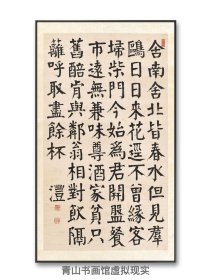 舍南舍北皆春水但見羣
鷗日日來花逕不曾緣客
埽柴門今始為君開盤餐
市遠無兼味尊酒家貧只
舊醅肯與鄰翁相對飲隔
籬呼取盡餘杯
澧
青山书画馆虚拟现实